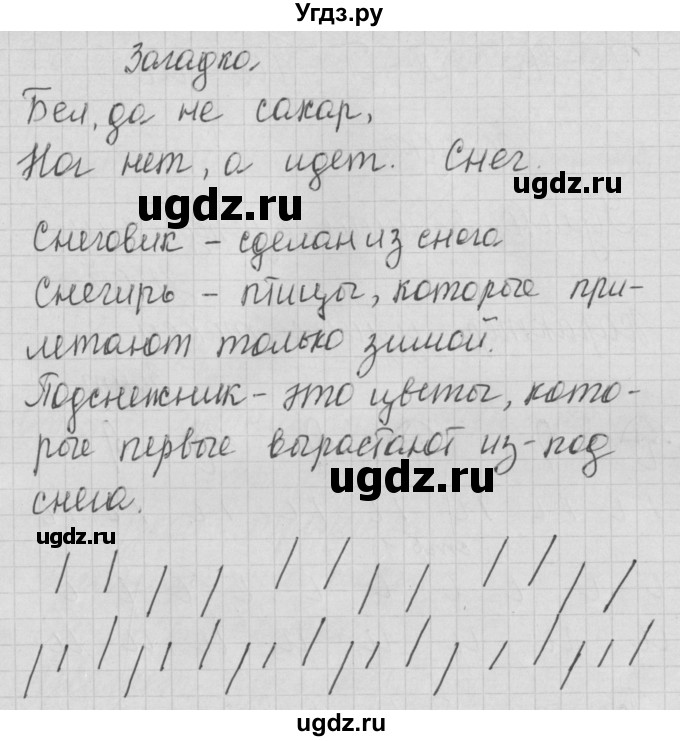 Угдз.ру
Загадка.
Бел, да не сахар,
Ног нет, а идет. Снег.
ugdz.ru
ugdz.ru
Снеговик - сделан из снога
Снегирь - птицы, которые при-
летают только зимой.
Подснежник - это цветы, кото-
рые первые вырастают из-под
ugdz.ru
снега.
ugdz.ru
ugdz.ru